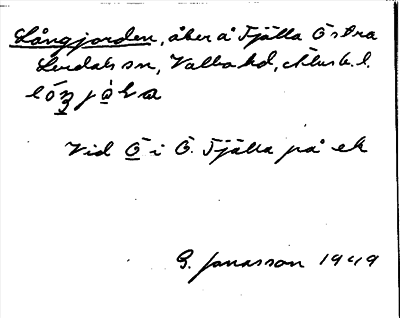 Långjorden, åker å Tjälla Östra
Lerdals sn, Valbo hd, Älvsb. l.
Vid Ö i Ö. Tjälla på ek
G. Jonasson 1949